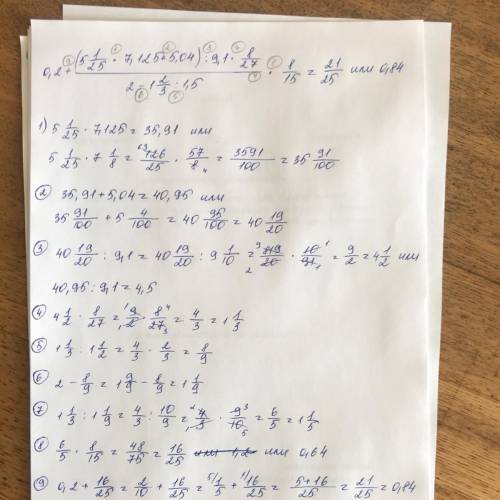 0,2+ (5 1/25 · 7,125+5,04) : 9,1 · 8/27 / 2 - 1 2/3 : 1,5 · 8/15 = 21/25 или 0,84
1) 5 1/25 · 7,125 = 35,91 или
5 1/25 · 7 1/8 = 126/25 · 57/8 = 3591/100 = 35 91/100
2 35,91+5,04=40,95 или
35 91/100 + 5 4/100 = 40 95/100 = 40 19/20
3 40 19/20 : 9,1 = 40 19/20 : 9 1/10 = 819/20 · 10/91 = 9/2 = 4 1/2 или
40,95 : 9,1 = 4,5
4 4 1/2 · 8/27 = 9/2 · 8/27 = 4/3 = 1 1/3
5 1 1/3 : 1 1/2 = 4/3 · 2/3 = 8/9
6 2 - 8/9 = 1 9/9 - 8/9 = 1 1/9
7 1 1/3 : 1 1/9 = 4/3 : 10/9 = 4/3 · 9/10 = 6/5 = 1 1/5
8 6/5 · 8/15 = 48/75 = 16/25 или 0,64
9 0,2 + 16/25 = 2/10 + 16/25 = 1/5 + 16/25 = 5+16/25 = 21/25 = 0,84